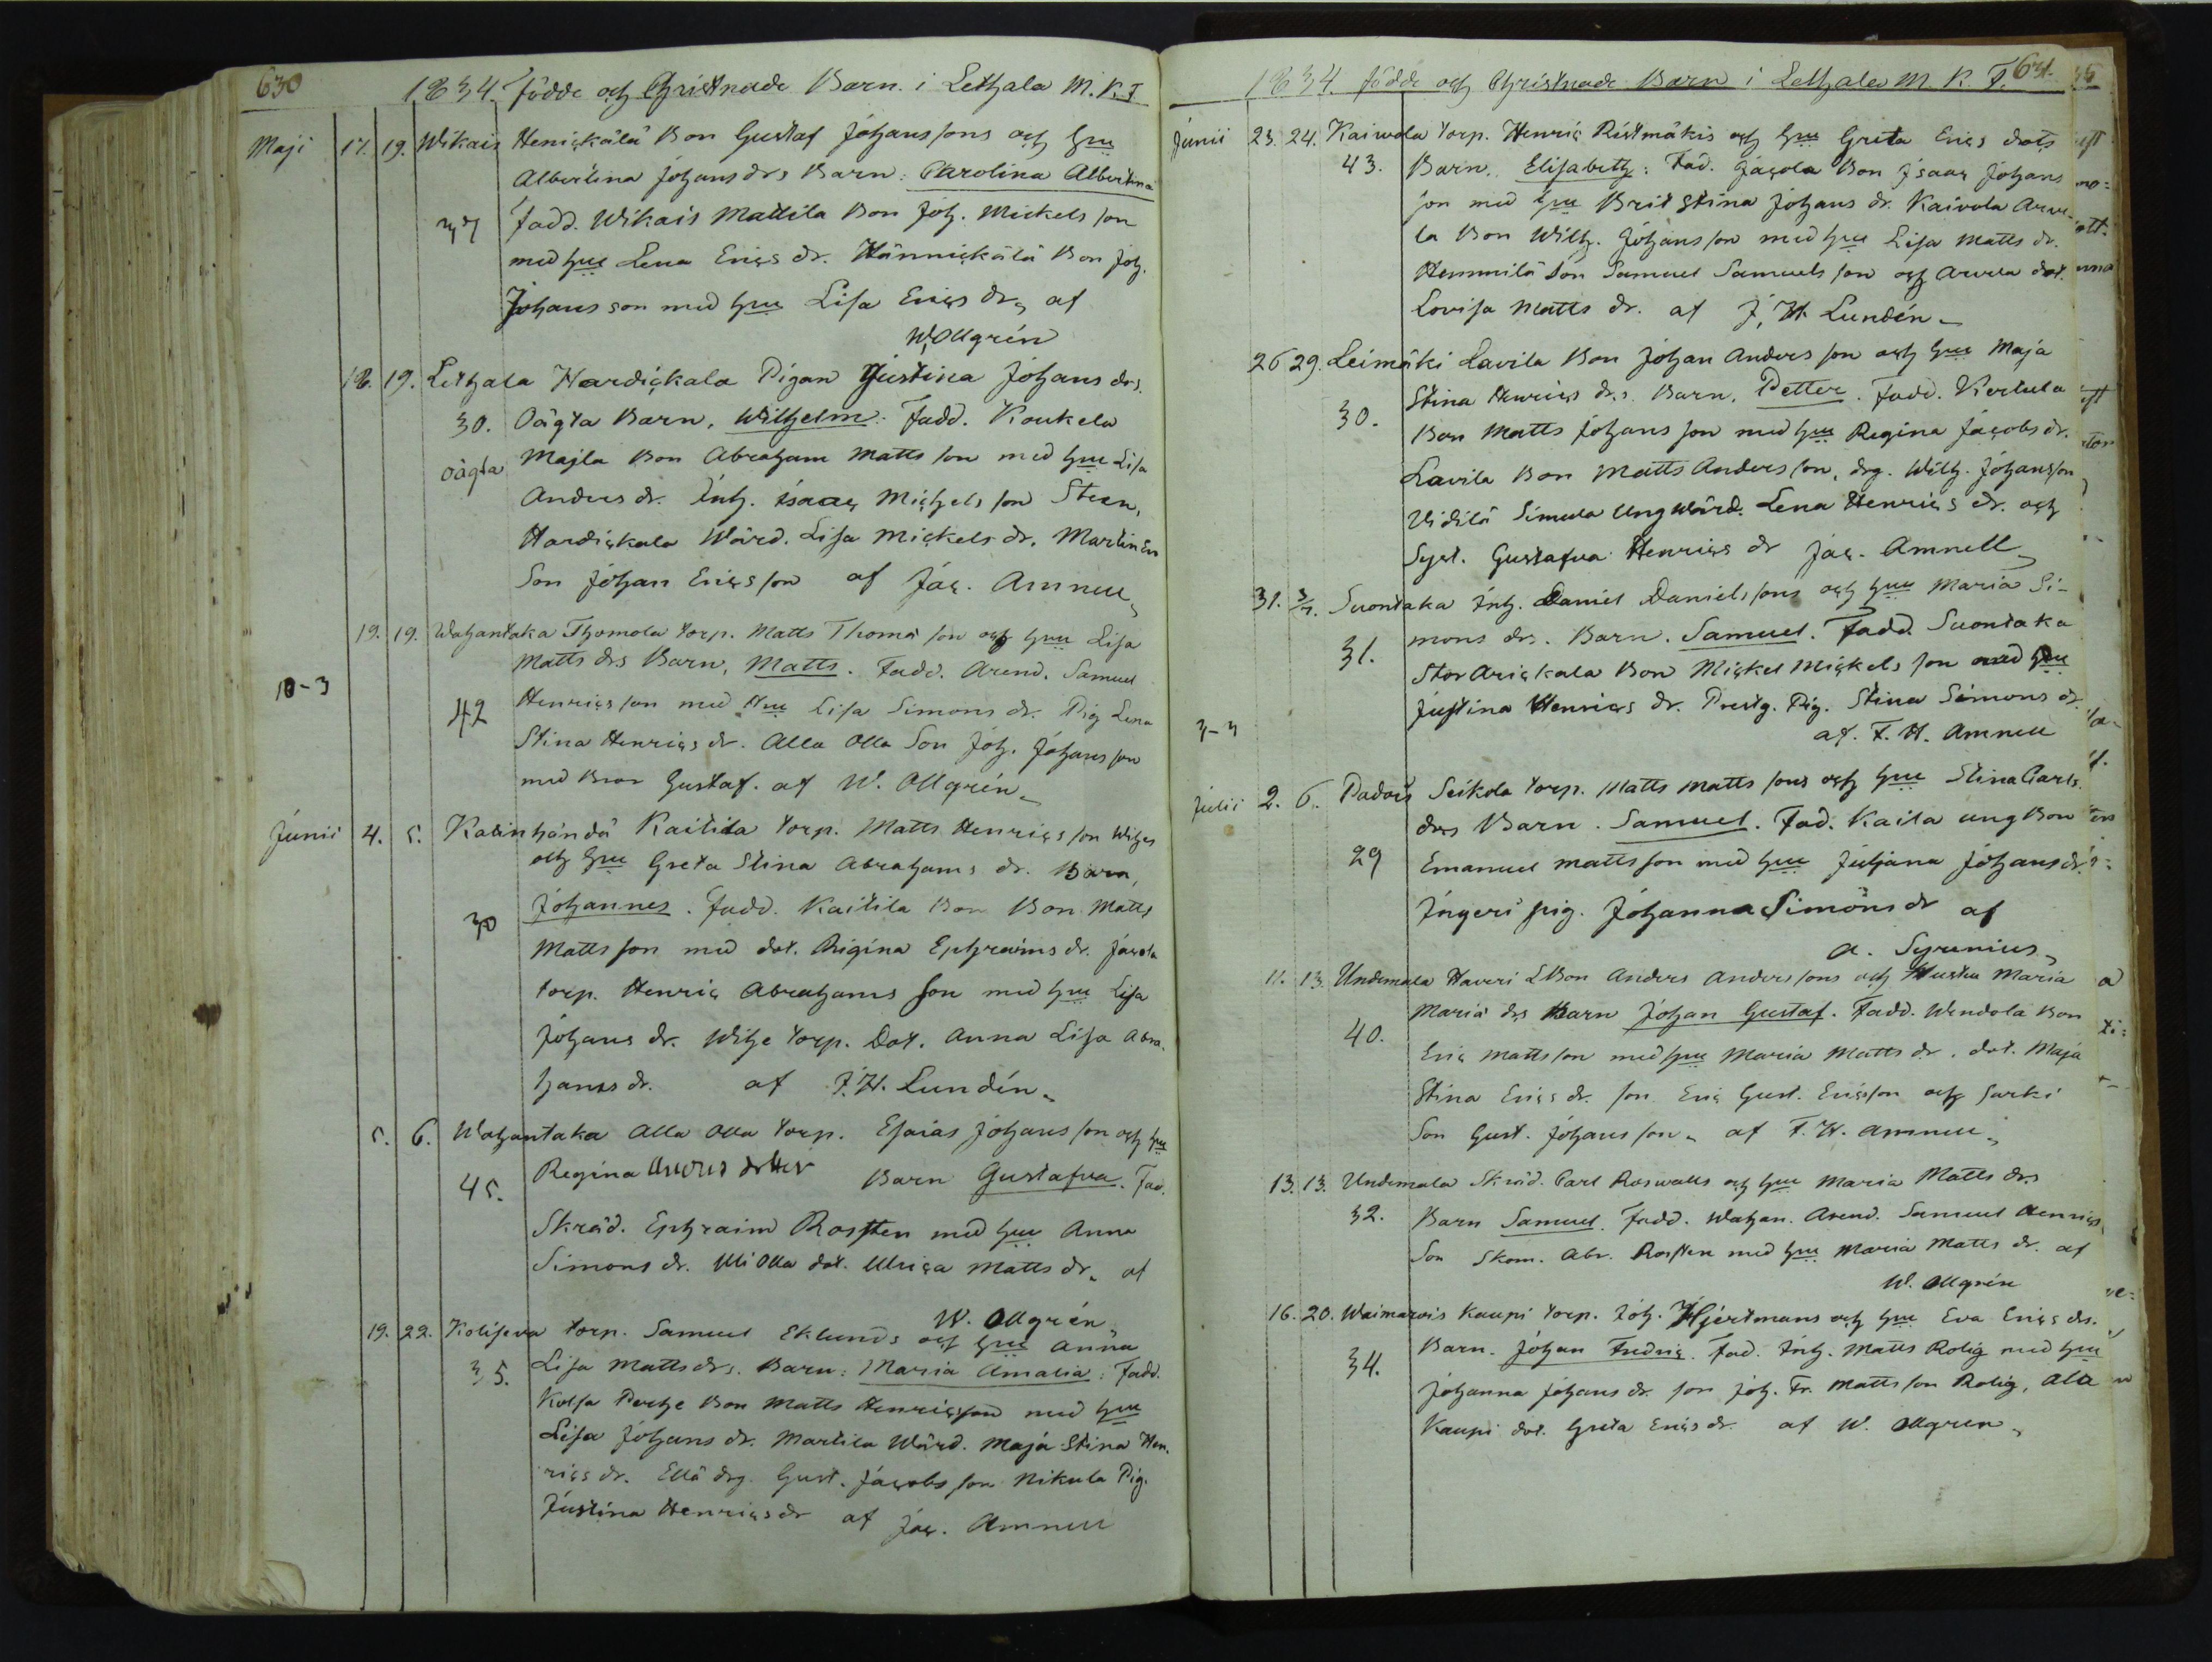 630
1834. Födde och Christnade Barn i Lethala M.K.F
Maji 17. 19. Wikais Henickälä Bon Gustaf Johanssons och Hu
Albertina Johans drs Barn: Carolina Albertina
Fadd. Wikais Mattila Bon Joh. Mickels son
med Hu Lena Erics dr. Hännickälä Bon Joh.
Johansson med Hu Lisa Erics dr, af
W. Ollgrén
18. 19. Lethala Hardickala Pigan Justina Johans drs.
30. Oägta Barn, Wilhelm. Fadd. Koukela
oägta Majla Bon Abraham Matts son med Hu Lisa
Anders dr. Inh. Isaac Michels son Steen,
Hardickala Wärd. Lisa Mickels dr. Martin En
Son Johan Erics son af Jac. Amnell
19. 19. Wahantaka Thomola torp. Matts Thomä son och Hu Lisa
Matts drs Barn, Matts. Fadd. Arend. Samuel
10-3
42 Henrics son med Hu Lisa Simons dr. Pig Lena
Stina Henrics dr. Alla Olla Son Joh. Johans son
med Bror Gustaf. af W. Ollgrén
Junii 4. 5. Karinhändä Kaitila torp. Matts Henrics son Witzes
och Hu Greta Stina Abrahams dr. Barn,
30 Johannes. Fadd. Kaitila Bon Bon Matts
Matts son med dot. Regina Ephraims dr. Jacola
torp. Henric Abrahams son med Hu Lisa
Johans dr. Witze torp. Dot. Anna Lisa Abra-
hams dr. af F. H. Lundén
5. 6. Wahantaka Alla Olla torp. Esaias Johans son och Hu
45. Regina Anders dotter Barn Gustafva. Fad.
Skräd. Ephraim Rosten med Hu Anna
Simons dr. Uli Olla dot. Ulrica Matts dr. af
W. Ollgrén
19. 22. Koliseva torp. Samuel Eklunds och Hu Anna
35. Lisa Matts drs. Barn: Maria Amalia: Fadd.
Kolsa Pertze Bon Matts Henricsson med Hu
Lisa Johans dr. Martila Wärd. Maja Stina Hen-
rics dr. Ellä drg. Gust. Jacobs son Nikula Pig.
Justina Henrics dr af Jac. Amnell
631.
1834. födde och Christnade Barn i Lethala M. K. F.
Junii 23. 24. Kaiwola torp. Henric Ristmäkis och Hu Greta Erics drots
43. Barn. Elisabeth: Fad. Jacola Bon Isaac Johans
son med Hu Brit Stina Johans dr. Kaivola Arwe-
la Bon Wilh. Johans son med Hu Lisa Matts dr.
Hemmilä Son Samuel Samuels son och Arvela dot.
Lovisa Matts dr. af J. H. Lundén
26 29. Leimäki Lavila Bon Johan Anders son och Hu Maja
Stina Henrics drs. Barn. Petter. Fadd. Kertula
30. Bon Matts Johans son med Hu Regina Jacobs dr.
Lavila Bon Matts Anders son, drg. Wilh. Johansson
Uidilä Simula Ungwärd. Lena Henrics dr. och
Syst. Gustafva Henrics dr Jac. Amnell
31. 3/7. Suontaka Inh. Daniel Daniels sons och Hu Maria Si-
mons drs. Barn. Samuel. Fadd. Suontaka
31. Stor Arickala Bon Mickel Mickels son med Hu
Justina Henrics dr. Prestg. Pig. Stina Simons dr.
3-3
af. F. H. Amnell
Julii 2. 6. Padois Seikola torp. Matts Matts sons och Hu Stina Carls
drs Barn. Samuel. Fad. Kaila ung Bon
29 Emanuel Mattsson med Hu Juljana Johans dr.
Ingeri pig. Johanna Simons dr af
A. Syrenius
11. 13. Undamala Haveri LBon Anders Anders sons och Hustru Maria
Mariä drs Barn Johan Gustaf. Fadd. Wendola Bon
40. Eric Matts son med Hu Maria Matts dr. dot. Maja
Stina Erics dr. son Eric Gust. Ericsson och Surki
Son Gust. Johans son. af F. H. Amnell
13. 13. Undamala Skräd. Carl Roswalls och Hu Maria Matts drs
32. Barn Samuel. Fadd. Wahan. Arend. Samuel Henrics
Son Skom. Abr. Rosten med Hu Maria Matts dr. af
W. Ollgrén
16. 20. Waimarois Kaupi torp. Joh. Hjertmans och Hu Eva Erics drs.
34. Barn. Johan Fredric. Fad. Inh. Matts Rolig med Hu
Johanna Johans dr. son Joh. Fr. Matts son Rolig, Ala
Kaupi dot. Greta Erics dr. af W. Ollgren